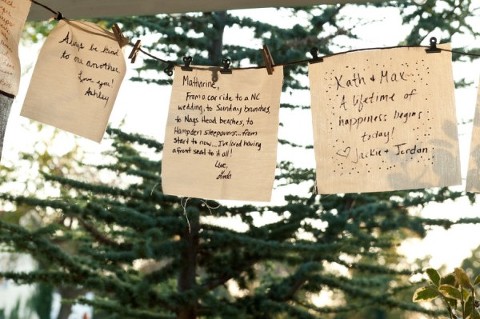 Always be kind
to one another
love you!
Ashley
Matherine,
From a car ride to a NC
wedding, to Sunday brunches,
to Nags Head beaches, to
Hampden sleepovers...from
start to now... I've loved having
a front seat to it all!
Love,
Kath & Max...
A lifetime of
happiness begins
today!
♡ Jackie + Jordan